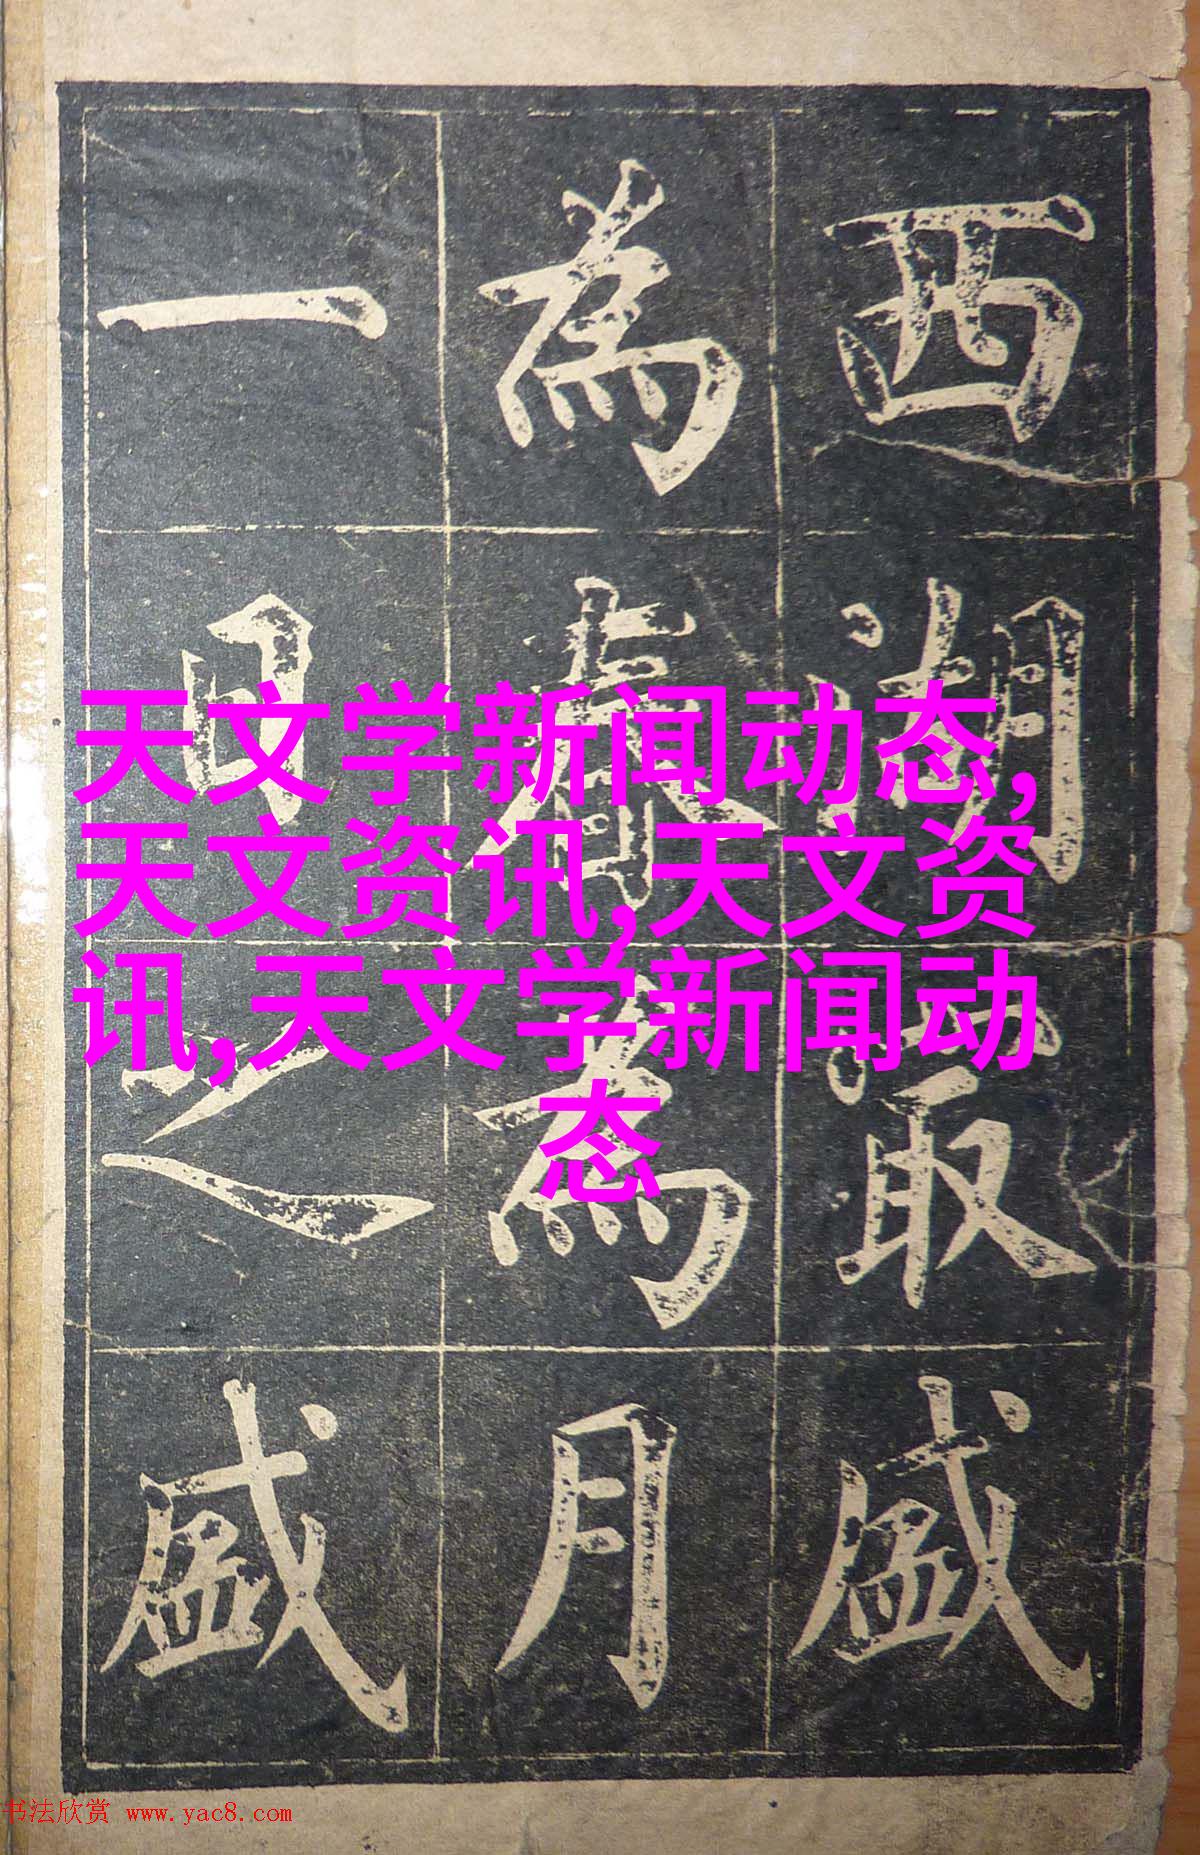 西湖最盛
為春為月
一日之盛
天文学新闻动态,
天文资讯,天文资
讯,天文学新闻动
态
书法欣赏 www.yac8.com